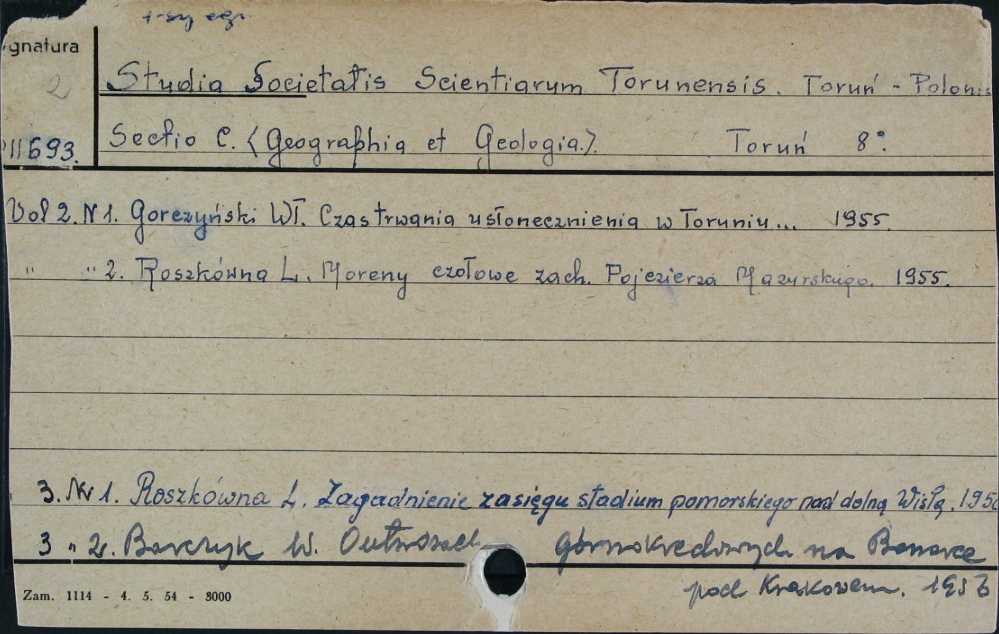 1-szy egz.
ygnatura
2
II 693.
Studia Societatis Scientiarum Torunensis. Toruń - Polonis
Sectio C. (Geographia et Geologia.). Toruń 8°.
Vol 2. N 1. Gorczyński Wł. Czas trwania usłonecznienia w Toruniu... 1955.
" " 2. Roszkówna L. Moreny czołowe zach. Pojezierza Mazurskiego. 1955.
3. Nr 1. Roszkówna L. Zagadnienie zasięgu stadium pomorskiego nad dolną Wisłą. 195
3 " 2. Barczyk W. O utworach górnokredowych na Bonarce
pod Krakowem. 1956
Zam. 1114 - 4. 5. 54 - 8000